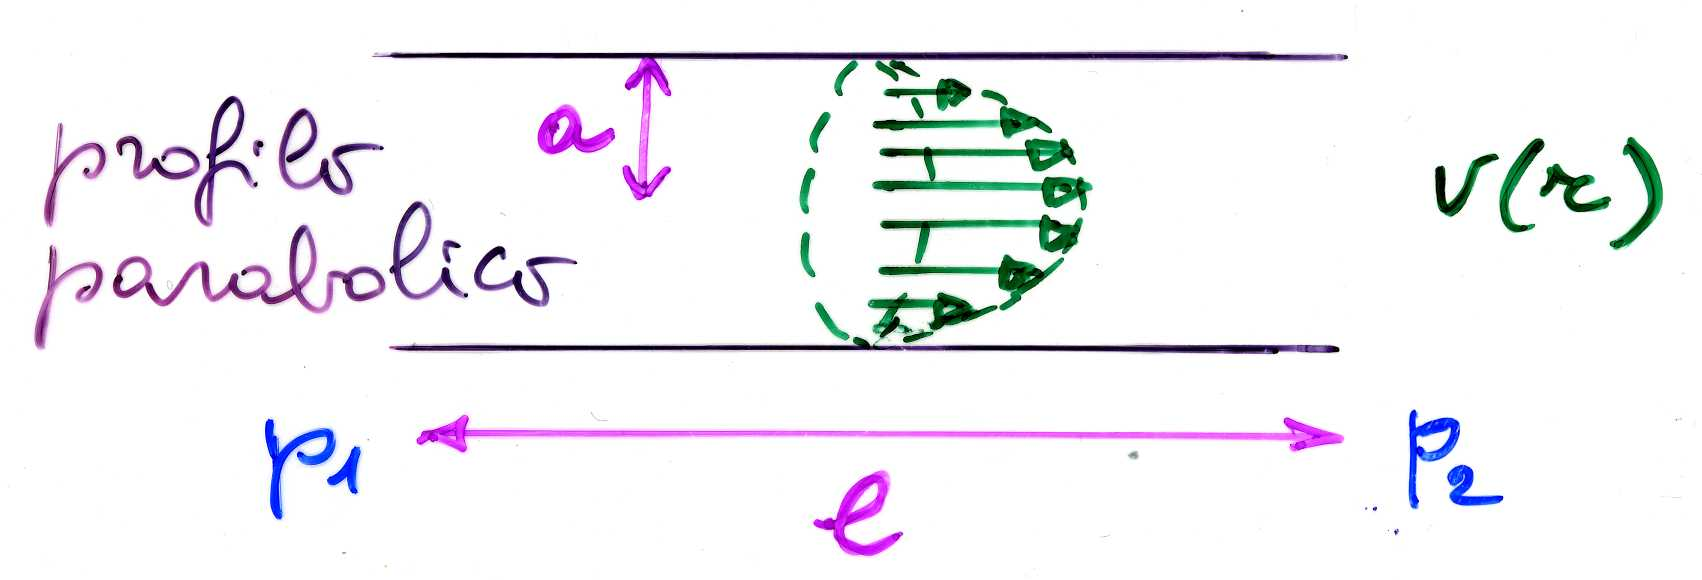 profilo
parabolico
a
v(r)
p1
l
p2